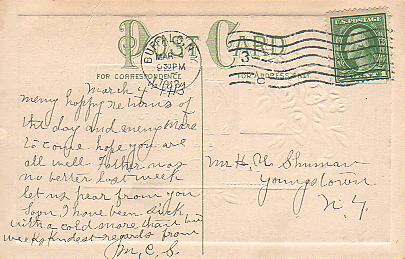 POST CARD
BUFFALO, N.Y.
MAR 4
9 30 PM
1913
U.S. POSTAGE
FOR CORRESPONDENCE
FOR ADDRESS ONLY
March 4 1913
many happy returns of
the day and many more
to come hope you are
all well Father was
no better last week
let us hear from you
soon I have been sick
with a cold more than two
weeks kindest regards from
M. C. S.
Mr H. N. Shuman
Youngstown
N. Y.